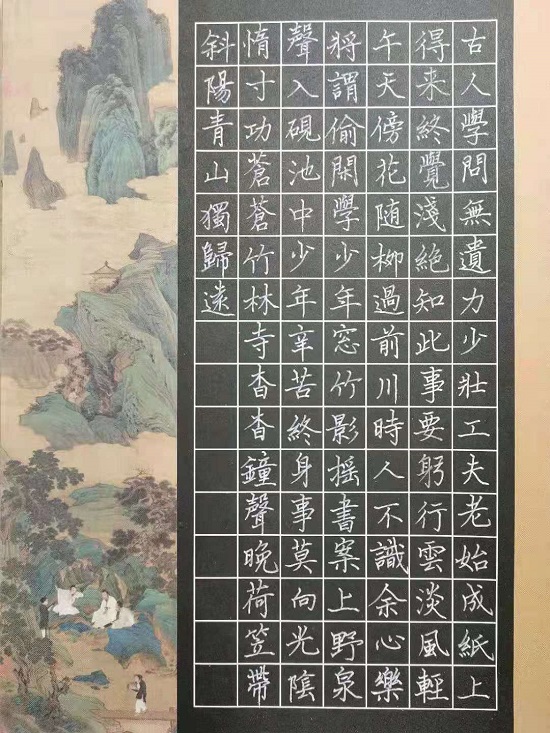 古人學問無遺力少壯工夫老始成紙上
得来終覺淺絕知此事要躬行雲淡風輕
午天傍花随柳過前川時人不識余心樂
將謂偷閑學少年窓竹影摇書案上野泉
聲入硯池中少年辛苦終身事莫向光陰
惰寸功蒼蒼竹林寺杳杳鐘聲晚荷笠帶
斜陽青山獨歸遠